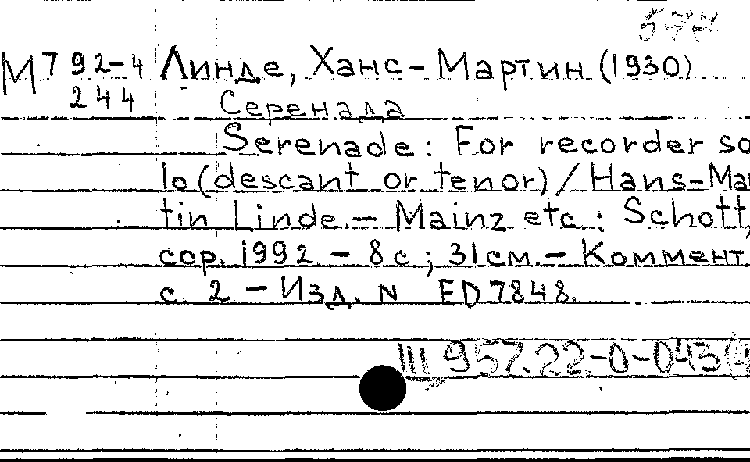 М7 92-4 Линде, Ханс-Мартин (1930)
244 Серенада
Serenade: For recorder so
lo (descant or tenor) / Hans-Mar
tin Linde.- Mainz etc.: Schott,
cop. 1992. - 8 с; 31 см.- Коммент.
с. 2 - Изд. N ED 7848.
III 957.22-0-043(4